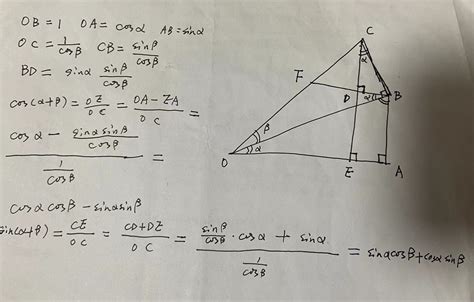 OB = 1 OA = cosα AB = sinα
OC = 1/cosβ CB = sinβ/cosβ
BD = sinα sinβ/cosβ
cos(α+β) = OE/OC = OA - EA/OC =
cosα - sinα sinβ/cosβ / 1/cosβ =
cosα cosβ - sinα sinβ
sin(α+β) = CE/OC = CD+DE/OC = sinβ/cosβ · cosα + sinα / 1/cosβ = sinα cosβ + cosα sinβ
C
α
F
D
α
B
β
α
O
E
A